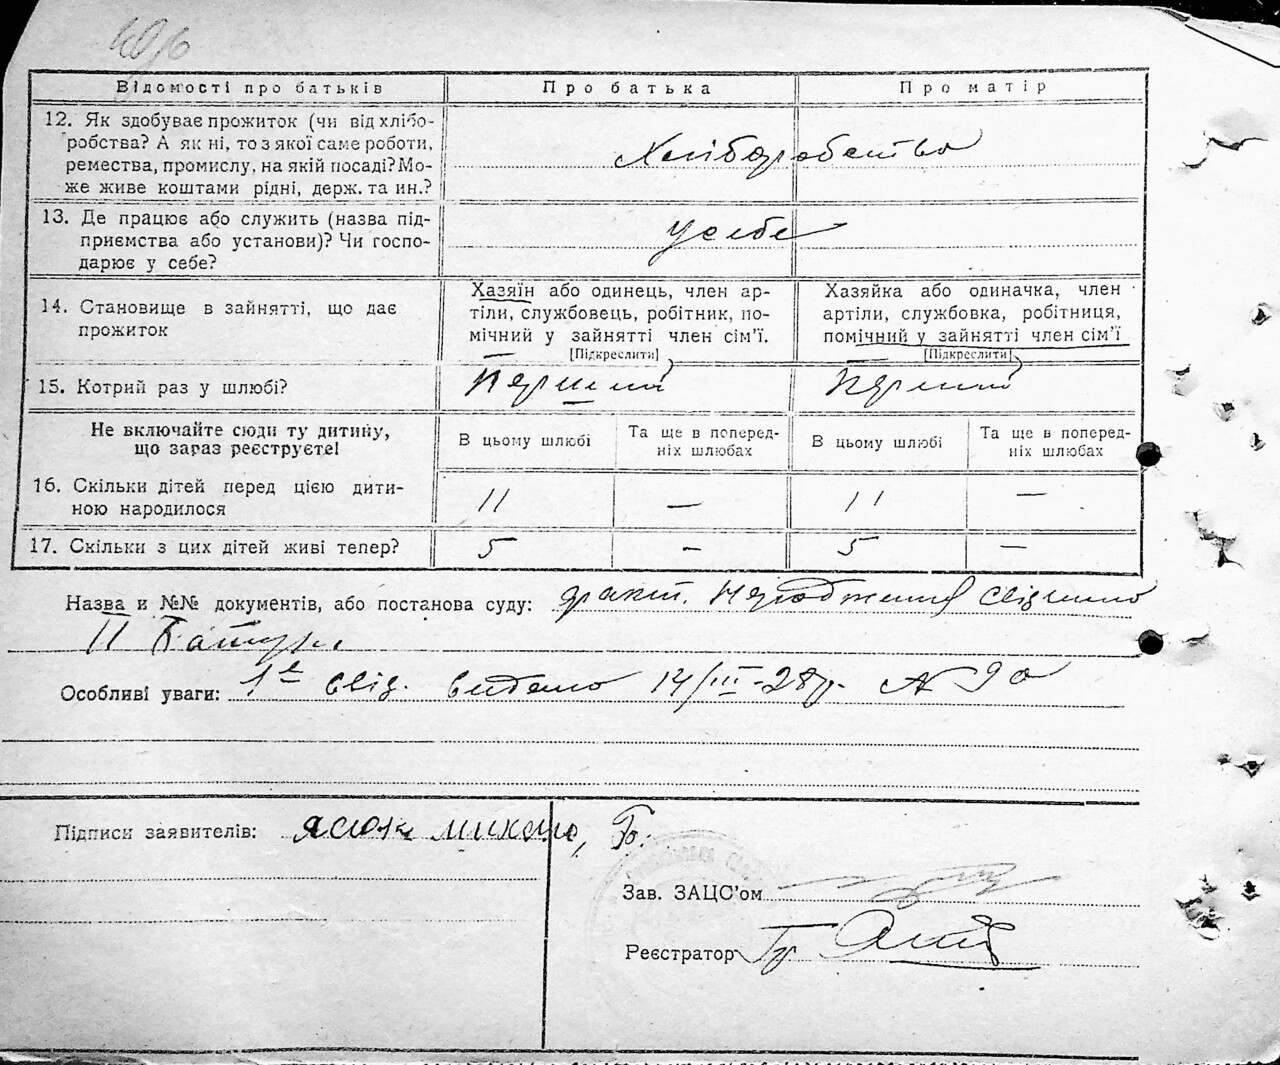 Відомості про батьків Про батька Про матір
12. Як здобуває прожиток (чи від хлібо-
робства? А як ні, то з якої саме роботи,
ремества, промислу, на якій посаді? Мо-
же живе коштами рідні, держ. та ин.?
Хліборобство
13. Де працює або служить (назва під-
приємства або установи)? Чи госпо-
дарює у себе?
у себе
14. Становище в зайнятті, що дає
прожиток
Хазяїн або одинець, член ар-
тіли, службовець, робітник, по-
мічний у зайнятті член сім'ї.
[Підкреслити]
Хазяйка або одиначка, член
артіли, службовка, робітниця,
помічний у зайнятті член сім'ї
[Підкреслити]
15. Котрий раз у шлюбі? Перший Перший
Не включайте сюди ту дитину,
що зараз реєструєте!
В цьому шлюбі
Та ще в поперед-
ніх шлюбах
В цьому шлюбі
Та ще в поперед-
ніх шлюбах
16. Скільки дітей перед цією дити-
ною народилося
11 — 11 —
17. Скільки з цих дітей живі тепер? 5 — 5 —
Назва и №№ документів, або постанова суду: факт. народження
Особливі уваги: свід. видано 14/III-28р. № 90
Підписи заявителів: Ясюк михайло,
Зав. ЗАЦС'ом
Реєстратор